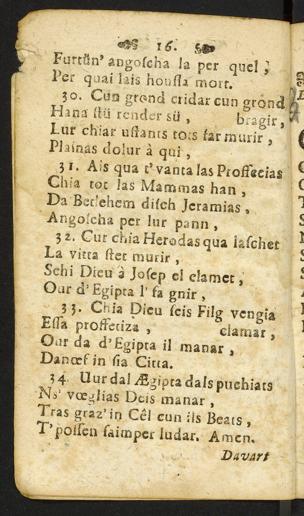 16.
Furtün' angoscha la per quel,
Per quai lais houssa mort.
30. Cun grond cridar cun grond
Hana stü render sü, bragir,
Lur chiar uffants tots far murir,
Plainas dolur à qui,
31. Ais qua t'vanta las Proffecias
Chia tot las Mammas han,
Da Betlehem disch Jeramias,
Angoscha per lur pann,
32. Cur chia Herodas qua laschet
La vitta stet murir,
Schi Dieu à Josep el clamet,
Our d'Egipta l' fa gnir,
33. Chia Dieu seis Filg vengia
Essa proffetiza, clamar,
Our da d'Egipta il manar,
Dancef in sia Citta.
34 Uur dal Ægipta dals puchiats
Ns' vœglias Deis manar,
Tras graz' in Cêl cun ils Beats,
T' possen saimper ludar. Amen.
Davart